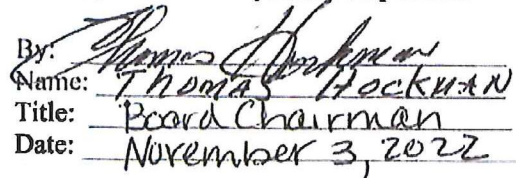 By: Thomas Hockman
Name: THOMAS HOCKMAN
Title: Board Chairman
Date: November 3, 2022